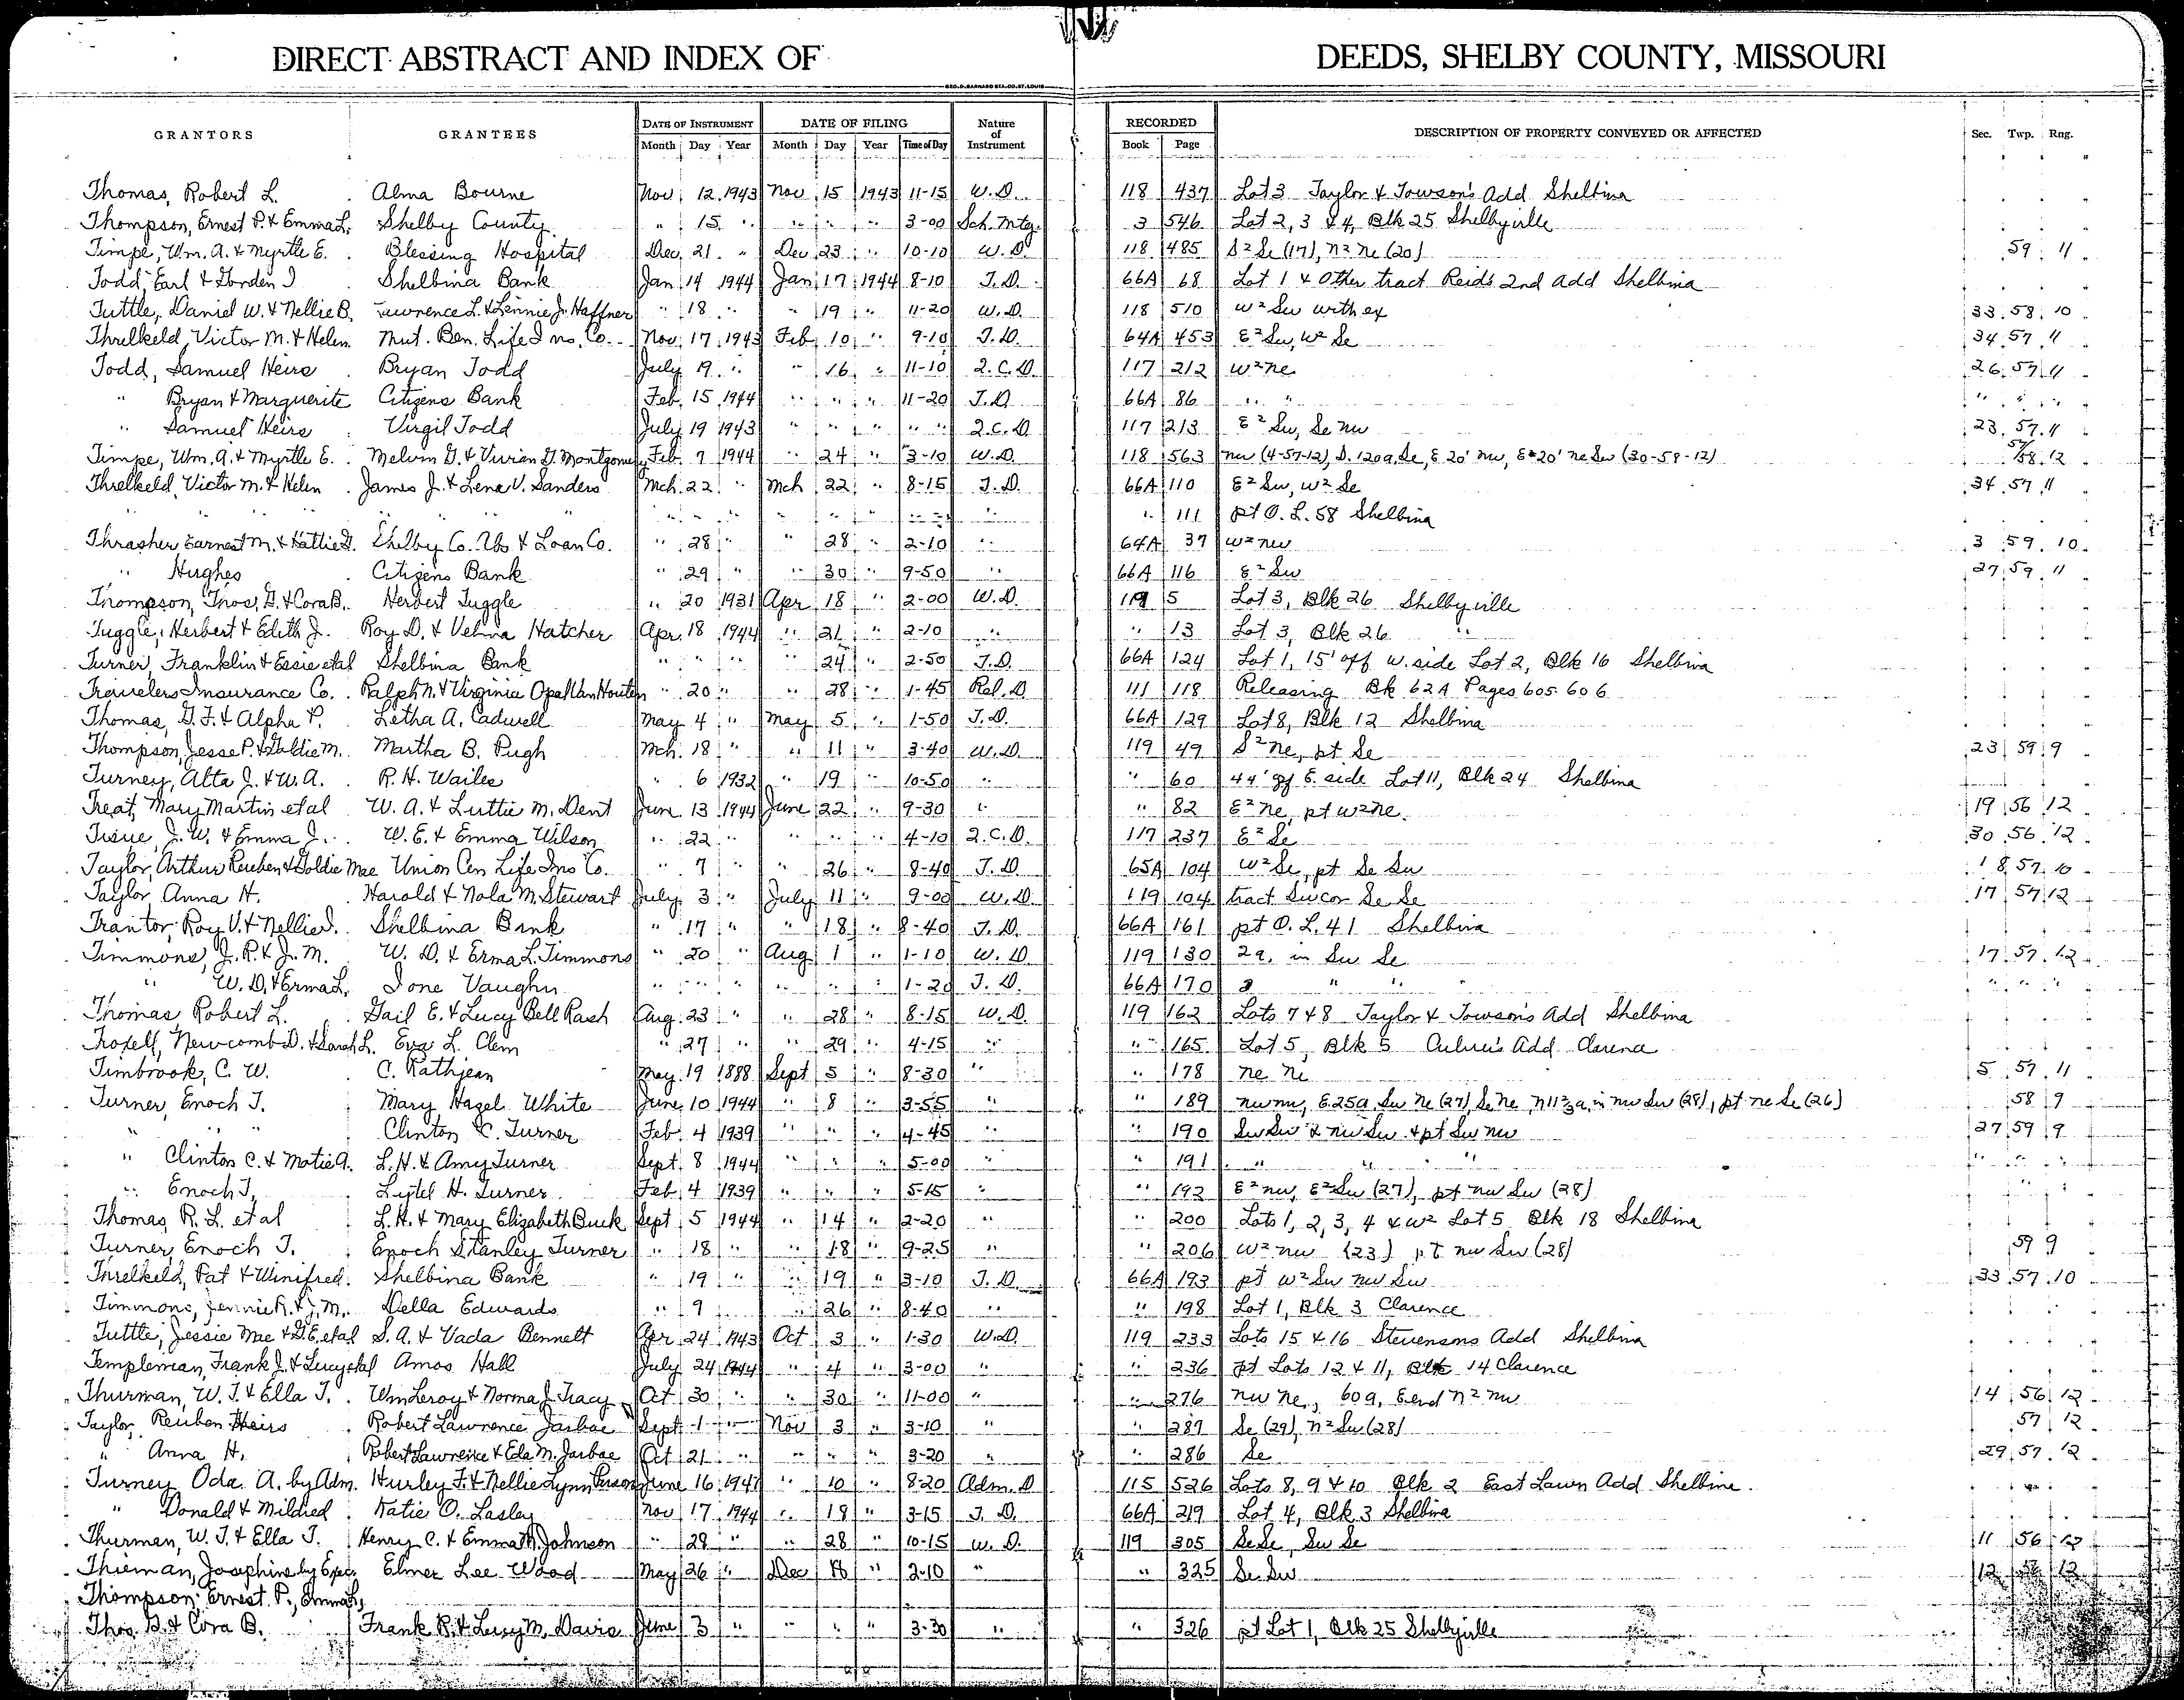 DIRECT ABSTRACT AND INDEX OF DEEDS, SHELBY COUNTY, MISSOURI
GEO. D. BARNARD STA. CO. ST. LOUIS
GRANTORS GRANTEES DATE OF INSTRUMENT DATE OF FILING Nature of Instrument RECORDED DESCRIPTION OF PROPERTY CONVEYED OR AFFECTED Sec. Twp. Rng.
Month Day Year Month Day Year Time of Day Book Page
Thomas, Robert L. Alma Bourne Nov. 12 1943 Nov 15 1943 11-15 W.D. 118 437 Lot 3 Taylor & Towson's Add Shelbina
Thompson, Ernest P. & Emma L. Shelby County " 15 " " " " 3-00 Sch. Mtg. 3 546 Lot 2, 3 & 4, Blk 25 Shelbyville
Timpe, Wm. A. & Myrtle E. Blessing Hospital Dec. 21 " Dec 23 " 10-10 W.D. 118 485 S2 Se (17), N2 Ne (20) 59 11
Todd, Earl & Gorden T Shelbina Bank Jan 14 1944 Jan 17 1944 8-10 T.D. 66A 68 Lot 1 & Other tract Reids 2nd Add Shelbina
Tuttle, Daniel W. & Nellie B. Lawrence L. & Lennie J. Haffner " 18 " " 19 " 11-20 W.D. 118 510 W2 Sw with ex 33 58 10
Threlkeld, Victor M. & Helen Mut. Ben. Life Ins. Co. Nov. 17 1943 Feb 10 " 9-10 T.D. 64A 453 E2 Sw, W2 Se 34 57 11
Todd, Samuel Heirs Bryan Todd July 19 " " 16 " 11-10 Q.C.D. 117 212 W2 Ne 26 57 11
" Bryan & Marguerite Citizens Bank Feb. 15 1944 " " " 11-20 T.D. 66A 86 " " " " "
" Samuel Heirs Virgil Todd July 19 1943 " " " " " Q.C.D. 117 213 E2 Sw, Se Nw 23 57 11
Timpe, Wm. A. & Myrtle E. Melvin G. & Vivian G. Montgomery Feb. 7 1944 " 24 " 3-10 W.D. 118 563 Nw (4-57-12), S. 120a Se, E 20' Nw, E 20' Ne Sw (30-58-12) 57/58 12
Threlkeld, Victor M. & Helen James J. & Lena V. Sanders Mch. 22 " Mch 22 " 8-15 T.D. 66A 110 E2 Sw, W2 Se 34 57 11
" " " " " " " " " " " " " " " " 111 pt O.L. 58 Shelbina
Thrasher, Earnest M. & Hattie G. Shelby Co. Abs & Loan Co. " 28 " " 28 " 2-10 " 64A 37 W2 Nw 3 59 10
" Hughes Citizens Bank " 29 " " 30 " 9-50 " 66A 116 E2 Sw 27 59 11
Thompson, Thos. G. & Cora B. Herbert Tuggle " 20 1931 Apr 18 " 2-00 W.D. 119 5 Lot 3, Blk 26 Shelbyville
Tuggle, Herbert & Edith J. Roy D. & Velma Hatcher Apr. 18 1944 " 21 " 2-10 " " 13 Lot 3, Blk 26 "
Turner, Franklin & Essie et al Shelbina Bank " " " " 24 " 2-50 T.D. 66A 124 Lot 1, 15' off W. side Lot 2, Blk 16 Shelbina
Travelers Insurance Co. Ralph N. & Virginia Opal Van Houten " 20 " " 28 " 1-45 Rel. D. 111 118 Releasing Bk 62A Pages 605-606
Thomas, G. F. & Alpha P. Letha A. Cadwell May 4 " May 5 " 1-50 T.D. 66A 129 Lot 8, Blk 12 Shelbina
Thompson, Jesse P. & Goldie M. Martha B. Pugh Mch. 18 " " 11 " 3-40 W.D. 119 49 S2 Ne, pt Se 23 59 9
Turney, Alta J. & W.A. R. H. Wailes " 6 1932 " 19 " 10-50 " " 60 44' off E. side Lot 11, Blk 24 Shelbina
Treat, Mary Martin et al W. A. & Luttie M. Dent June 13 1944 June 22 " 9-30 " " 82 E2 Ne, pt W2 Ne. 19 56 12
Tisue, J. W. & Emma J. W. E. & Emma Wilson " 22 " " " " 4-10 Q.C.D. 117 237 E2 Se 30 56 12
Taylor, Arthur Reuben & Goldie Mae Union Cen Life Ins Co. " 7 " " 26 " 8-40 T.D. 65A 104 W2 Se, pt Se Sw 18 57 10
Taylor Anna H. Harold & Nola M. Stewart July 3 " July 11 " 9-00 W.D. 119 104 tract Sw cor Se Se 17 57 12
Trantor, Roy V. & Nellie S. Shelbina Bank " 17 " " 18 " 8-40 T.D. 66A 161 pt O.L. 41 Shelbina
Timmons, J. R. & J. M. W. D. & Erma L. Timmons " 20 " Aug 1 " 1-10 W.D. 119 130 2a. in Sw Se 17 57 12
" W. D. & Erma L. Ione Vaughn " " " " " " 1-20 T.D. 66A 170 2 " " " " " "
Thomas Robert L. Gail E. & Lucy Bell Rash Aug. 23 " " 28 " 8-15 W.D. 119 162 Lots 7 & 8 Taylor & Towson's Add Shelbina
Troxell, Newcomb D. & Sarah L. Eva L. Clem " 27 " " 29 " 4-15 " " 165 Lot 5, Blk 5 Culver's Add Clarence
Timbrook, C. W. C. Rathjean May 19 1888 Sept 5 " 8-30 " " 178 Ne Ne 5 57 11
Turner, Enoch T. Mary Hazel White June 10 1944 " 8 " 3-55 " " 189 Nw Nw, E. 25a Sw Ne (27), Se Ne, in Nw Sw (28), pt Ne Se (26) 58 9
" " " Clinton C. Turner Feb. 4 1939 " " " 4-45 " " 190 Sw Sw & Nw Sw & pt Sw Nw 27 59 9
" Clinton C. & Matie A. L. H. & Amy Turner Sept. 8 1944 " " " 5-00 " " 191 " " " "
" Enoch T. Lytel H. Turner Feb 4 1939 " " " 5-15 " " 192 E2 Nw, E2 Sw (27), pt Nw Sw (28)
Thomas, R. L. et al L. H. & Mary Elizabeth Buck Sept 5 1944 " 14 " 2-20 " " 200 Lots 1, 2, 3, 4 & W2 Lot 5 Blk 18 Shelbina
Turner, Enoch T. Enoch Stanley Turner " 18 " " 18 " 9-25 " " 206 W2 Nw (23) pt Nw Sw (28) 59 9
Threlkeld, Pat & Winifred Shelbina Bank " 19 " " 19 " 3-10 T.D. 66A 193 pt W2 Sw Nw Sw 33 57 10
Timmons, Jennie R. & J. M. Della Edwards " 9 " 26 " 8-40 " " 198 Lot 1, Blk 3 Clarence
Tuttle, Jessie Mae & G.E. et al S. A. & Vada Bennett Apr 24 1943 Oct 3 " 1-30 W.D. 119 233 Lots 15 & 16 Stevensons Add Shelbina
Templeman, Frank J. & Lucy et al Amos Hall July 24 1944 " 4 " 3-00 " " 236 pt Lots 12 & 11, Blk 14 Clarence
Thurman, W. T. & Ella T. Wm Leroy & Norma J. Tracy Oct 30 " " 30 " 11-00 " " 276 Nw Ne, 60a, E end N2 Nw 14 56 12
Taylor, Reuben Heirs Robert Lawrence Jarboe Sept 1 " Nov 3 " 3-10 " " 289 Se (29), N2 Sw (28) 57 12
" Anna H. Robert Lawrence & Eda M. Jarboe Oct 21 " " " " 3-20 " " 286 Se 29 57 12
Turney Oda A. by Adm. Hurley F. & Nellie Lynn Person June 16 1941 " 10 " 8-20 Adm. D 115 526 Lots 8, 9 & 10 Blk 2 East Lawn Add Shelbina.
" Donald & Mildred Katie O. Lasley Nov 17 1944 " 18 " 3-15 T.D. 66A 219 Lot 4, Blk 3 Shelbina
Thurman, W. T. & Ella T. Henry C. & Emma M. Johnson " 28 " " 28 " 10-15 W.D. 119 305 Se Se, Sw Se 11 56 12
Thieman, Josephine by Exec. Elmer Lee Wood May 26 " Dec " 2-10 " " 325 Se Sw 12 56 12
Thompson, Ernest P., Emma L,
Thos. G. & Cora B. Frank R. & Lucy M. Davis June 3 " " " " 3-30 " " 326 pt Lot 1, Blk 25 Shelbyville